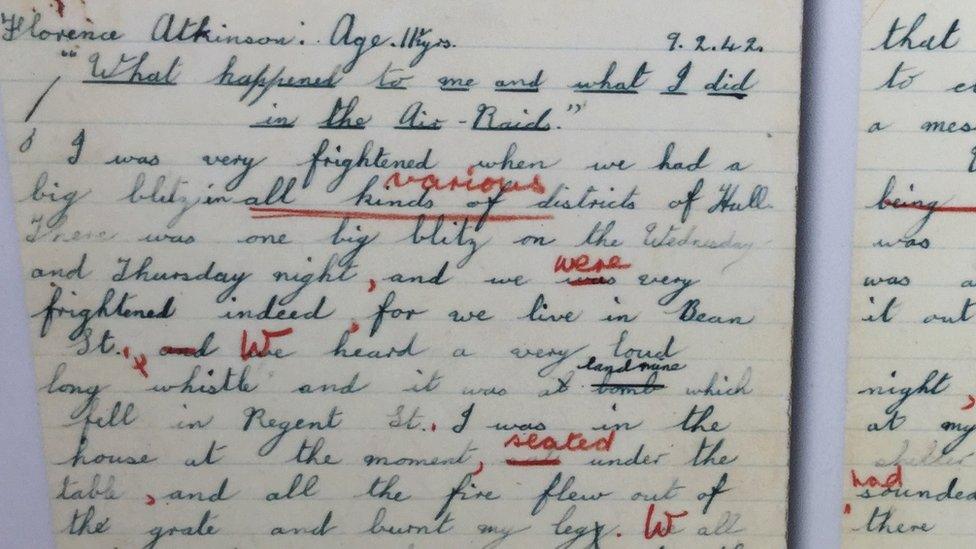 Florence Atkinson. Age. 11½yrs. 9.2.42.
"What happened to me and what I did
in the Air-Raid."
I was very frightened when we had a
various
big blitz in all kinds of districts of Hull.
There was one big blitz on the Wednesday
were
and Thursday night, and we was very
frightened indeed, for we live in Bean
St., and We heard a very loud
land mine
long whistle and it was a bomb which
fell in Regent St. I was in the
seated
house at the moment, under the
table, and all the fire flew out of
the grate and burnt my leg. We all
that
to
a mes
being
was
was a
it out
night,
at my
shelter
had
sounded
there